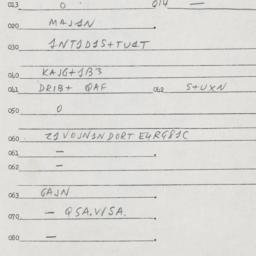 013 0 014 —
020 MAJ1N
030 1NT1D1S+TU1T
040 KAJG+1B3
041 DRIB+ QAF 042 S+UXN
050 0
060 21V0JN1NDORT E4RG81C
061 —
062 —
063 GAJN
070 — QSA.V/SA.
080 —